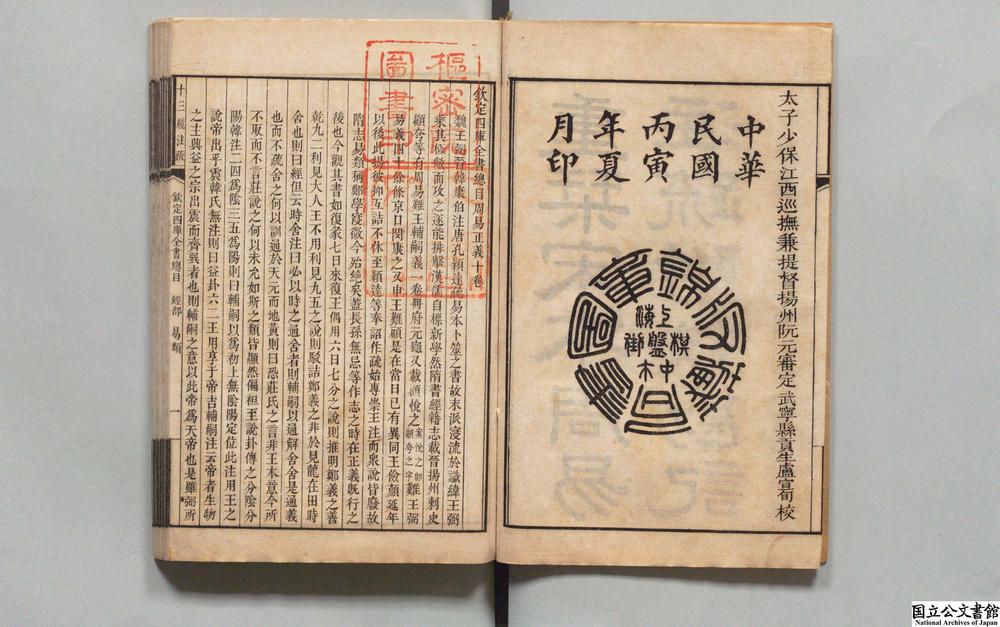 太子少保江西巡撫兼提督揚州阮元審定 武寧縣貢生盧宣旬校
中華
民國
丙寅
年夏
月印
上海
棋盤街中
欽定四庫全書總目周易正義十卷
魏王弼晉韓康伯注唐孔穎達疏易本卜筮之書故末派寖流於讖緯王弼
乘其極敝而攻之遂能排擊漢儒自標新學然隋書經籍志載晉揚州刺史
顧夸等有周易難王輔嗣義一卷冊府元龜又載顧悅之案悅之即顧夸之字難王弼
易義四十餘條京口閔康之又申王難顧是在當日已有異同王儉顏延年
以後此揚彼抑互詰不休至穎達等奉詔作疏始專崇王注而衆說皆廢故
隋志易類稱鄭學寖微今殆絕矣蓋長孫無忌等作志之時在正義旣行之
後也今觀其書如復彖七日來復王偶用六日七分之說則推明鄭義之善
乾九二利見大人王不用利見九五之說則駁詰鄭義之非於見龍在田時
舍也則曰經但云時舍注曰必以時之通舍者則輔嗣以通解舍舍是通義
也而不疏舍之何以訓通於天元而地黃則曰恐莊氏之言非王本意今所
不取而不言莊說之何以未允如斯之類皆顯然偏袒至說卦傳之分陰分
陽韓注二四爲陰三五爲陽則曰輔嗣以爲初上無陰陽定位此注用王之
說帝出乎震韓氏無注則曰益卦六二王用享于帝吉輔嗣注云帝者生物
之主興益之宗出震而齊巽者也則輔嗣之意以此帝爲天帝也是雖弼所
十三經注疏 欽定四庫全書總目 經部 易類 一
樞密
圖書印
国立公文書館
National Archives of Japan